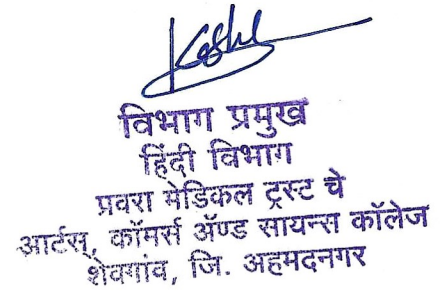 विभाग प्रमुख
हिंदी विभाग
प्रवरा मेडिकल ट्रस्ट चे
आर्टस्, कॉमर्स ॲण्ड सायन्स कॉलेज
शेवगांव, जि. अहमदनगर